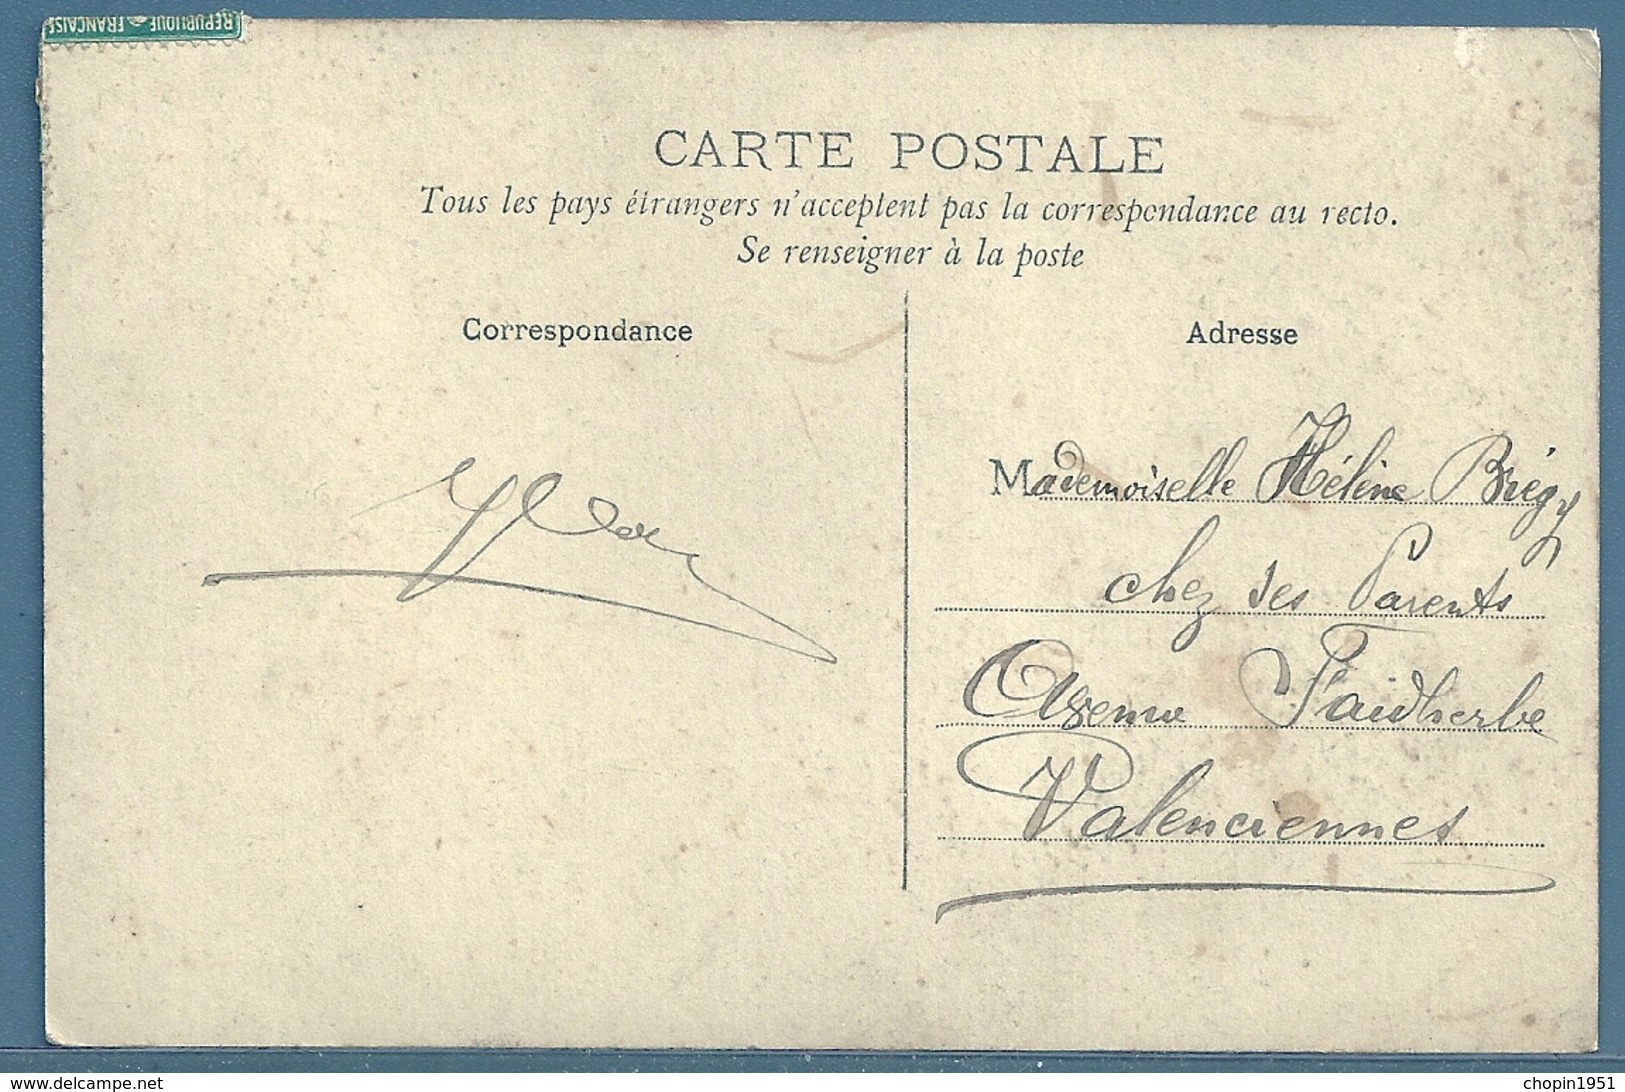 REPUBLIQUE FRANÇAISE
CARTE POSTALE
Tous les pays étrangers n'acceptent pas la correspondance au recto.
Se renseigner à la poste
Correspondance
Adresse
Mademoiselle Hélène Brégy
chez ses Parents
Avenue Faidherbe
Valenciennes
delcampe.net
chopin1951